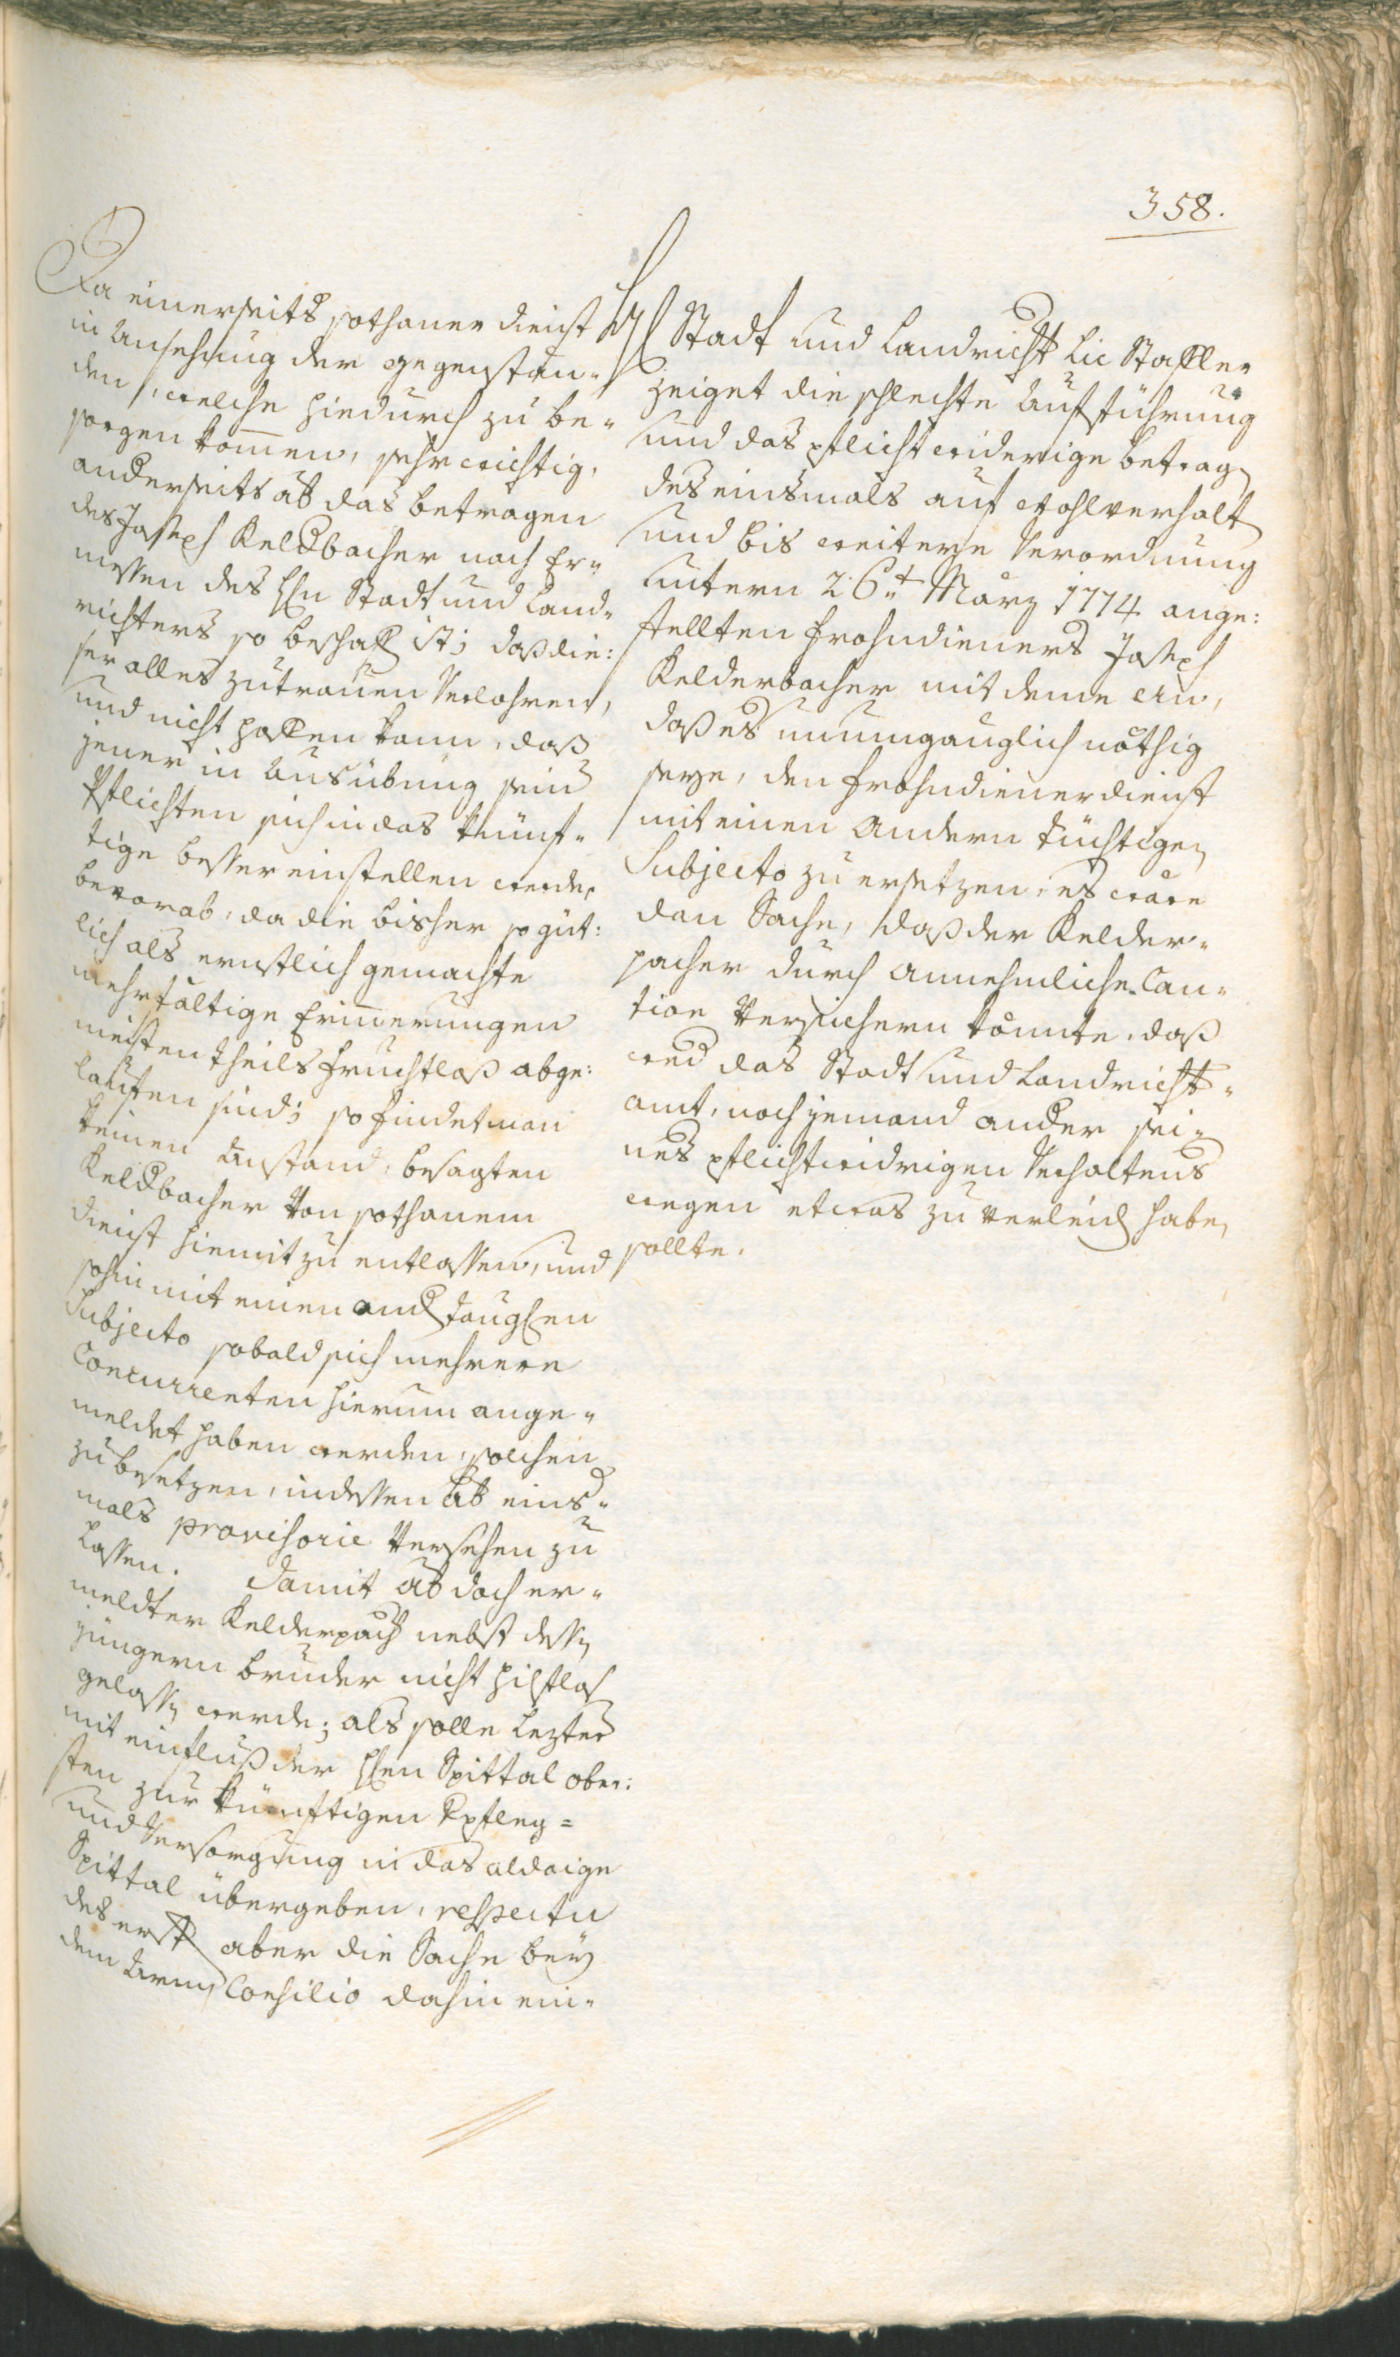 358.
Da einerseits sothaner dienst
in Ansehung der gegenstän-
den, welche hiedurch zu be-
sorgen kom̄en, sehr wichtig,
anderseits ab das betragen
des Joseph Keldbacher nach Er-
messen des H̄n Stadt und Land-
richters so beschaff ist; daß die:
ser alles zutrauen Verlohren,
und nicht hoffen kann, daß
jener in Ausübung sein
Pflichten sich in das künf-
tige besser einstellen werde,
bevorab, da die bisher so güt:
lich als ernstlich gemachte
mehrfältige Erin̄erungen
meisten theils fruchtloß abge:
lauffen sind; so findet man
keinen Anstand, besagten
Keldbacher von sothanem
dienst hiemit zu entlassen, und
sohin mit einen and tauglen
Subjecto sobald sich mehrere
Concurrenten hierum ange-
meldet haben werden, solchen
zu besetzen, indessen ab eins-
mals provisorie versehen zu
lassen. damit ab doch er-
meldter Kelderpach nebst dessen
jüngern bruder nicht hilflos
gelassen werde; als solle lezter
mit einfluß der H̄en Spittal ober:
sten zur künftigen Pfleg=
und Versorgung in das aldaige
Spittal übergeben, respectu
des erst aber die Sache bey
dem Armen Consilio dahin ein-
H Stadt und Landricht Lic Staffler
zeiget die schlechte Aufführung
und das pflicht widerige betragen
des einsmals auf wohlverhalten
und bis weitere Verordnung
untern 26t März 1774 ange:
stellten frohndieners Joseph
Kelderbacher mit deme ein,
daß es unumgänglich nöthig
seye, den frohndienerdienst
mit einen andern tüchtigen
Subjecto zu ersetzen, es wäre
dan Sache, daß der Kelder-
pacher durch annehmliche Cau-
tion versichern könnte, daß
wed das Stadt und Landricht-
amt, noch jemand ander sei-
nes pflichtwidrigen Verhaltens
wegen etwas zu verleid haben
sollte.